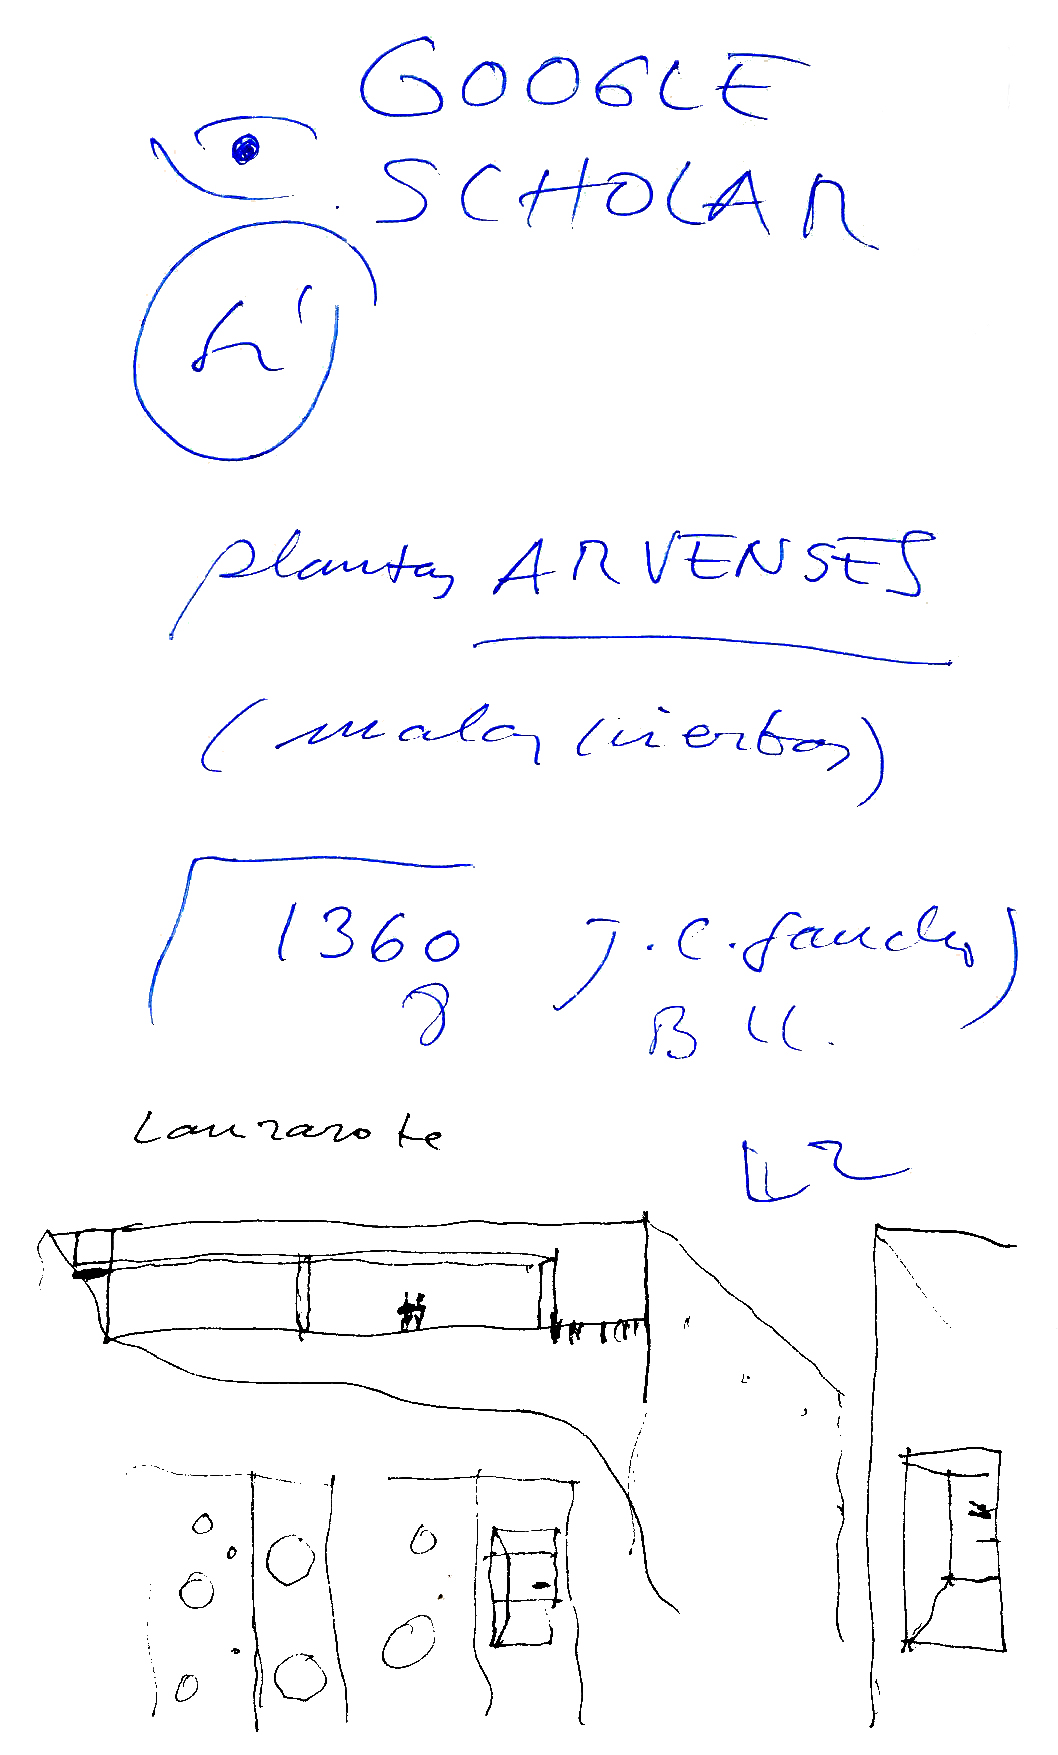 GOOGLE
SCHOLAR
plantas ARVENSES
(malas hierbas)
1360 J. C.
8
Lanzarote